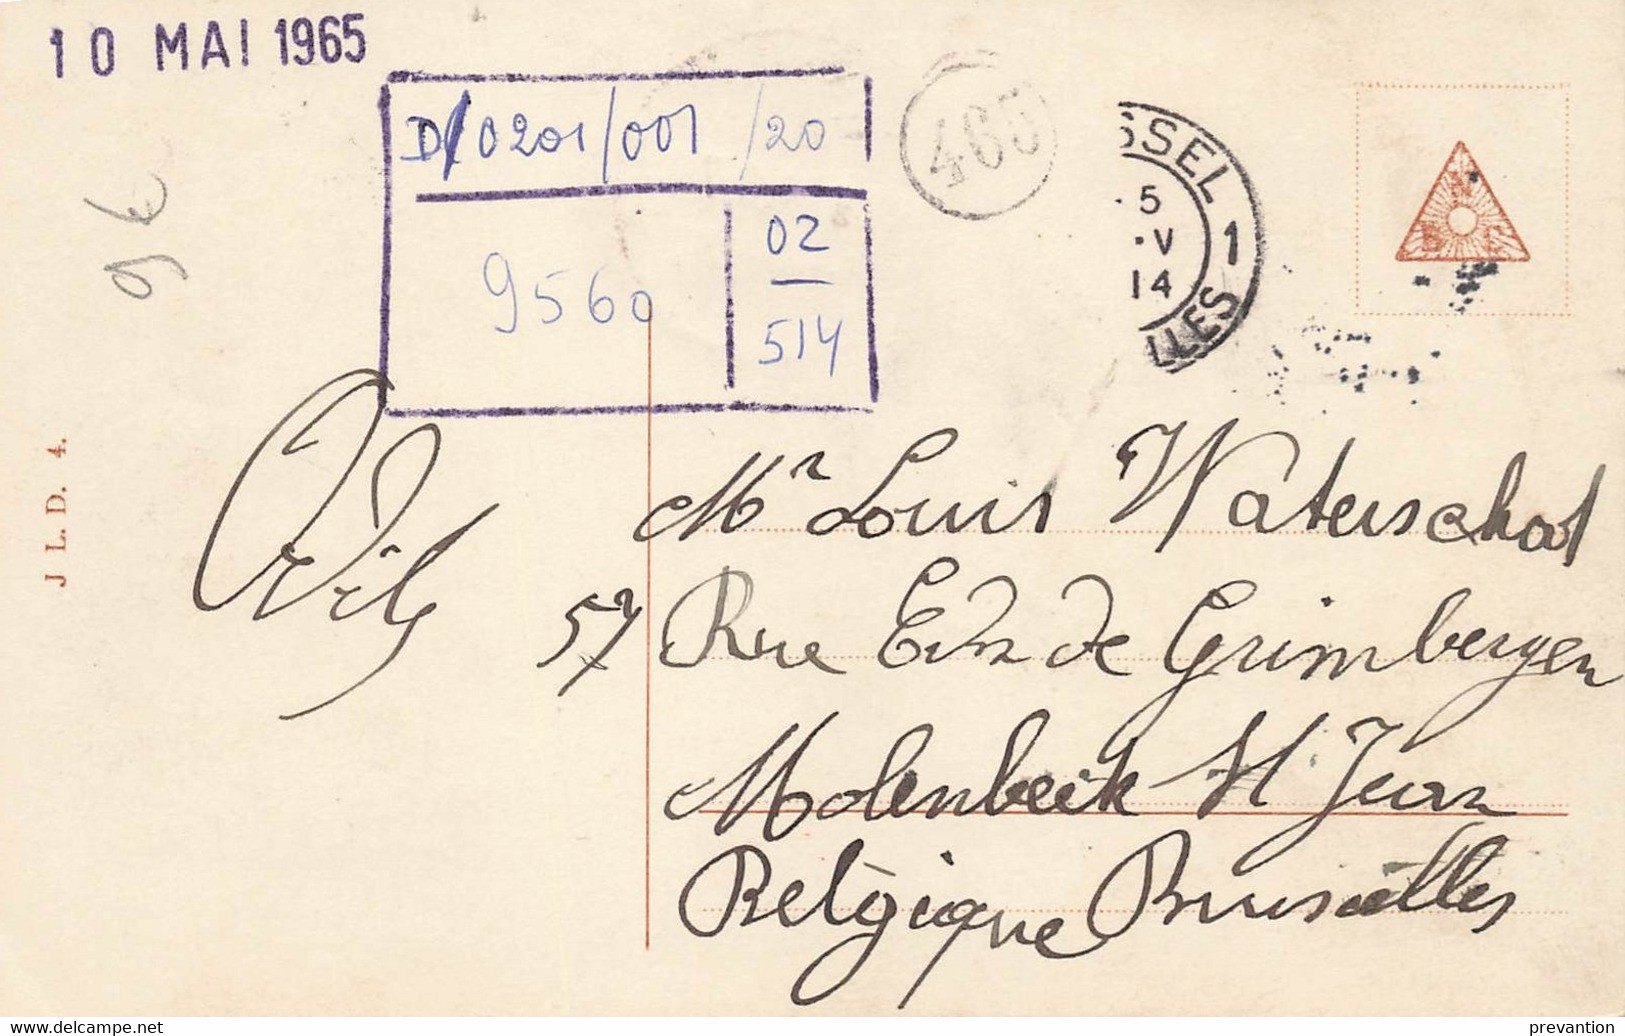 10 MAI 1965
D/0201/001/20
9560
02
514
465
SSEL
5
V
14
1
LLES
9 €
J L. D. 4.
Mr Louis Waterschot
57 Rue Evr de Grimbergen
Molenbeik St Jean
Belgique Bruxelles
prevantion